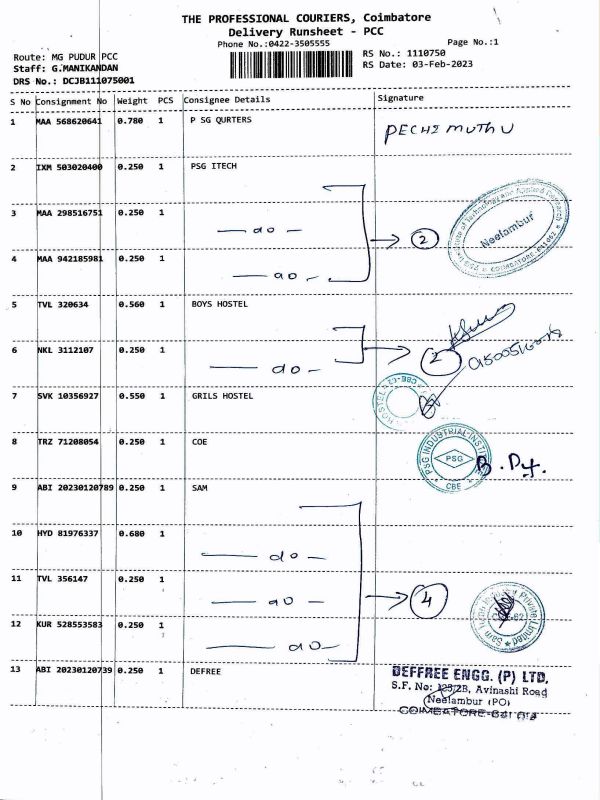 THE PROFESSIONAL COURIERS, Coimbatore
Delivery Runsheet - PCC
Phone No.:0422-3505555
Page No.:1
Route: MG PUDUR PCC
Staff: G.MANIKANDAN
DRS No.: DCJB111075001
RS No.: 1110750
RS Date: 03-Feb-2023
S No Consignment No Weight PCS Consignee Details Signature
1 MAA 568620641 0.780 1 P SG QURTERS PECHI MUTHU
2 IXM 503020400 0.250 1 PSG ITECH
3 MAA 298516751 0.250 1 — do —
PSG Institute of Technology and Applied Research
Neelambur
COIMBATORE-641062
→ 2
4 MAA 942185981 0.250 1 — do —
5 TVL 320634 0.560 1 BOYS HOSTEL
6 NKL 3112107 0.250 1 — do — → 2
7 SVK 10356927 0.550 1 GRILS HOSTEL
HOSTEL
8 TRZ 71208054 0.250 1 COE
PSG INDUSTRIAL INSTITUTE
PSG
CBE
9 ABI 20230120789 0.250 1 SAM
10 HYD 81976337 0.680 1 — do —
11 TVL 356147 0.250 1 — do — → 4
12 KUR 528553583 0.250 1 — do —
Private Limited
13 ABI 20230120739 0.250 1 DEFREE
DEFFREE ENGG. (P) LTD,
S.F. No: 125/2B, Avinashi Road
Neelambur (PO)